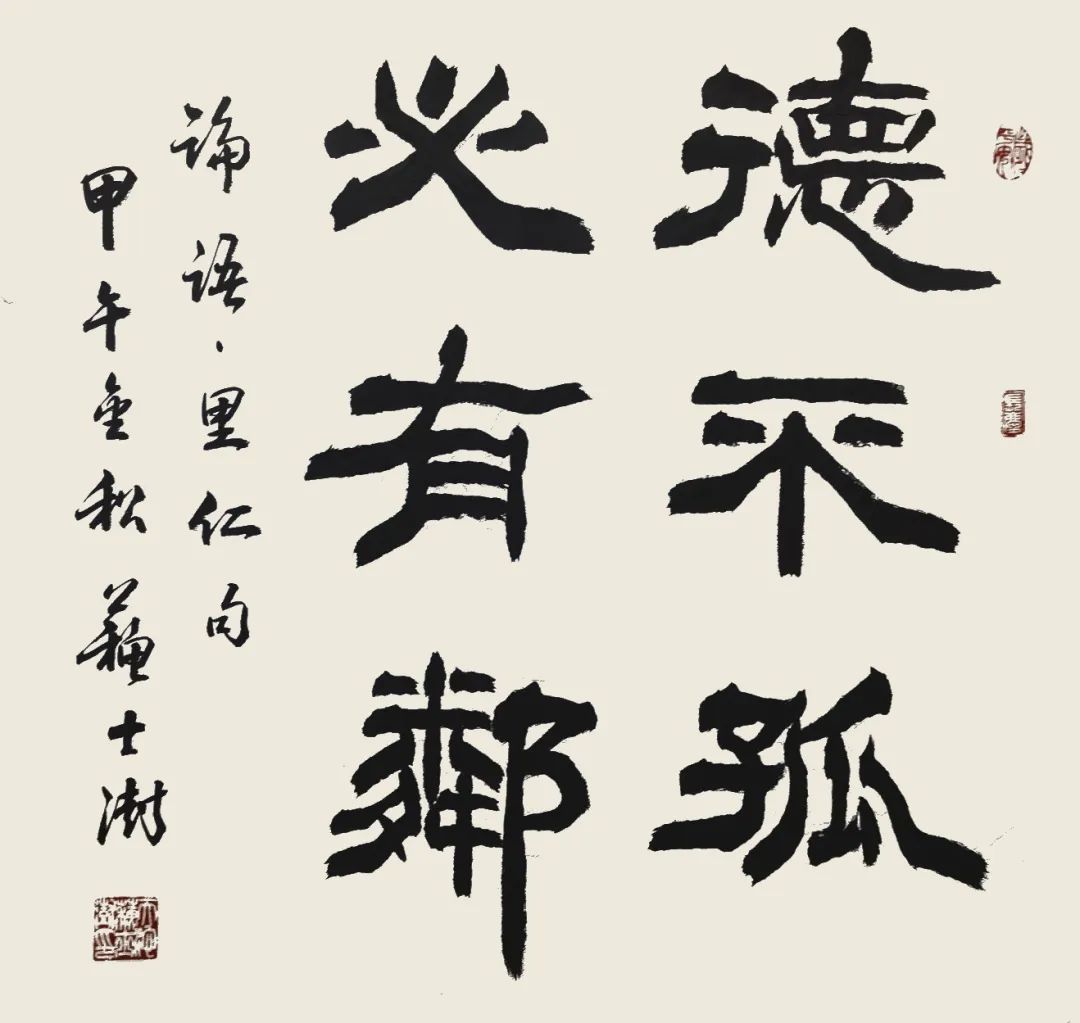 德不孤
必有鄰
論語·里仁句
甲午金秋蘇士澍